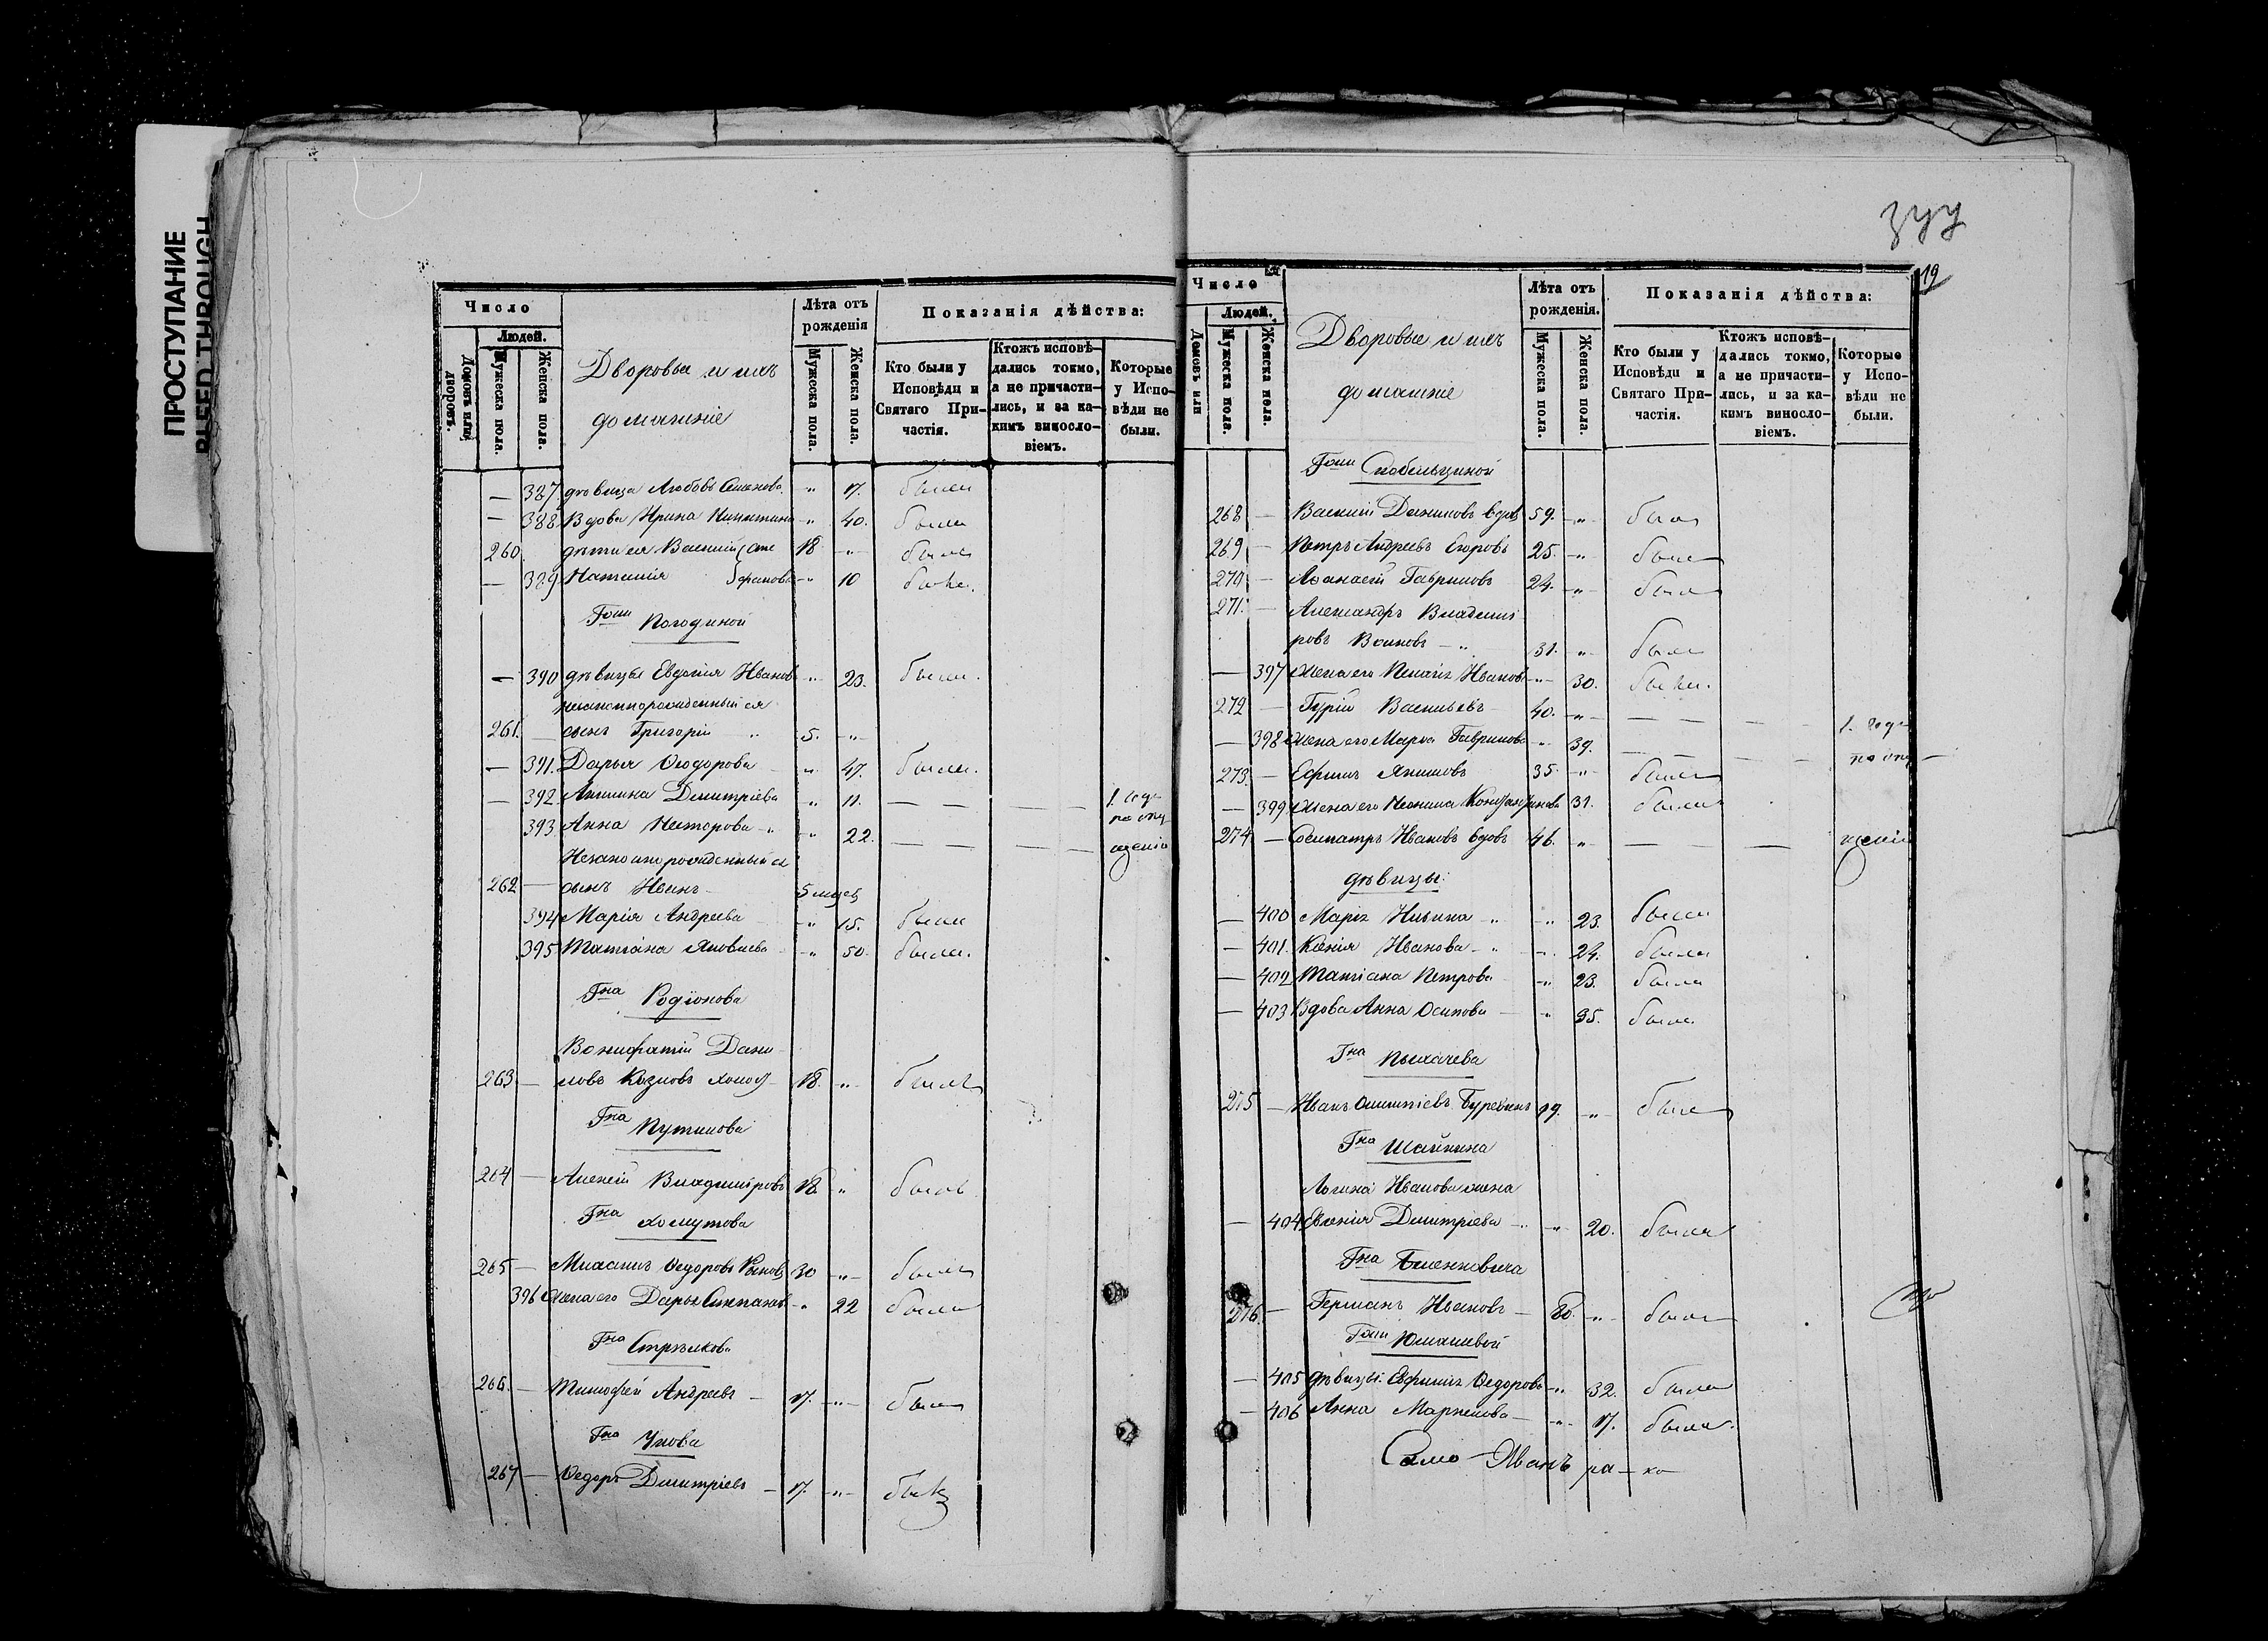 ПРОСТУПАНИЕ
BLEED THROUGH
Число
Людей.
Домовъ или дворовъ.
Мужеска пола.
Женска пола.
Дворовые и ихъ
домашніе
Лѣта отъ рожденія
Мужеска пола.
Женска пола.
Показанія дѣйства:
Кто были у Исповѣди и Святаго Причастія.
Ктожъ исповѣдались токмо, а не причастились, и за какимъ винословіемъ.
Которые у Исповѣди не были.
— 387. дѣвица Любовь Семенова " 17. была
— 388. Вдова Ирина Никитина " 40. была
260 дѣти ея Василій 18 " былъ
— 389 Наталія " 10 была.
Гжи Погодиной
— 390 дѣвицы Евдокія Иванов " 23. была.
незаконнорожденный ея
261. — сынъ Григорій 5. "
— 391. Дарья Ѳеодорова " 47. была.
— 392. Акилина Димитріева " 11. — — — —
393. Анна Несторова " 22. — — — —
по опу
щенію
Незаконнорожденный ея
262 — сынъ Иванъ 5 мѣсяц
394 Марія Андреева " 15. была
395 Татіана Яковлева " 50. была.
Гна Родіонова
Вонифатій Дани
263 — ловъ Козловъ холост 18. " былъ
Гна Путилова
264 — Алексій Владиміровъ 18. " былъ
Гна Хомутова
265 — Михаилъ Ѳедоровъ 30 " былъ
396 Жена его Дарья Степанов " 22 была
Гна Стрѣлкова
266. — Тимофей Андреевъ — 17. " былъ
Гна Ухова
267 — Ѳедоръ Дмитріевъ — 17. " былъ
377
19
Число
Людей.
Домовъ или
Мужеска пола.
Женска пола.
Дворовые и ихъ
домашніе
Лѣта отъ рожденія.
Мужеска пола.
Женска пола.
Показанія дѣйства:
Кто были у Исповѣди и Святаго Причастія.
Ктожъ исповѣдались токмо, а не причастились, и за какимъ винословіемъ.
Которые у Исповѣди не были.
Гжи Скобельциной
268 — Василій Даниловъ вдов 59. " былъ
269 — Петръ Андреевъ Егоровъ 25. " былъ
270 — Аѳанасій Гавриловъ 24. " былъ
271. — Александръ Владимі
ровъ Волковъ 31. " былъ
— 397 жена его Пелагія Иванов " 30. была.
272 — Гурій Васильевъ 40. " — — — —
— 398 Жена его Марѳа Гаврилова " 39. — — — —
по опу —
273. — Ефимъ Акимовъ 35. " былъ
— 399 жена его Неонила Константинова 31. была
274 — Сосипатръ Ивановъ вдовъ 46. " — — — щенію
дѣвицы:
— 400 Марія Ильина " 23. была
— 401. Ксенія Иванова " 24. была
— 402 Татіана Петрова " 23. была
— 403 Вдова Анна Осипова " 35. была
Гна Пыхачева
275 — Иванъ " былъ
Гна Шайкина
Логина Иванова жена
— 404 Евгенія Димитріева " 20. была
Гна
276. — Германъ Ивановъ — 60. " былъ
Гжи Юматовой
— 405 дѣвицы: Евфимія Ѳедорова " 32. была
— 406 Анна Маркелова — " 17. была.